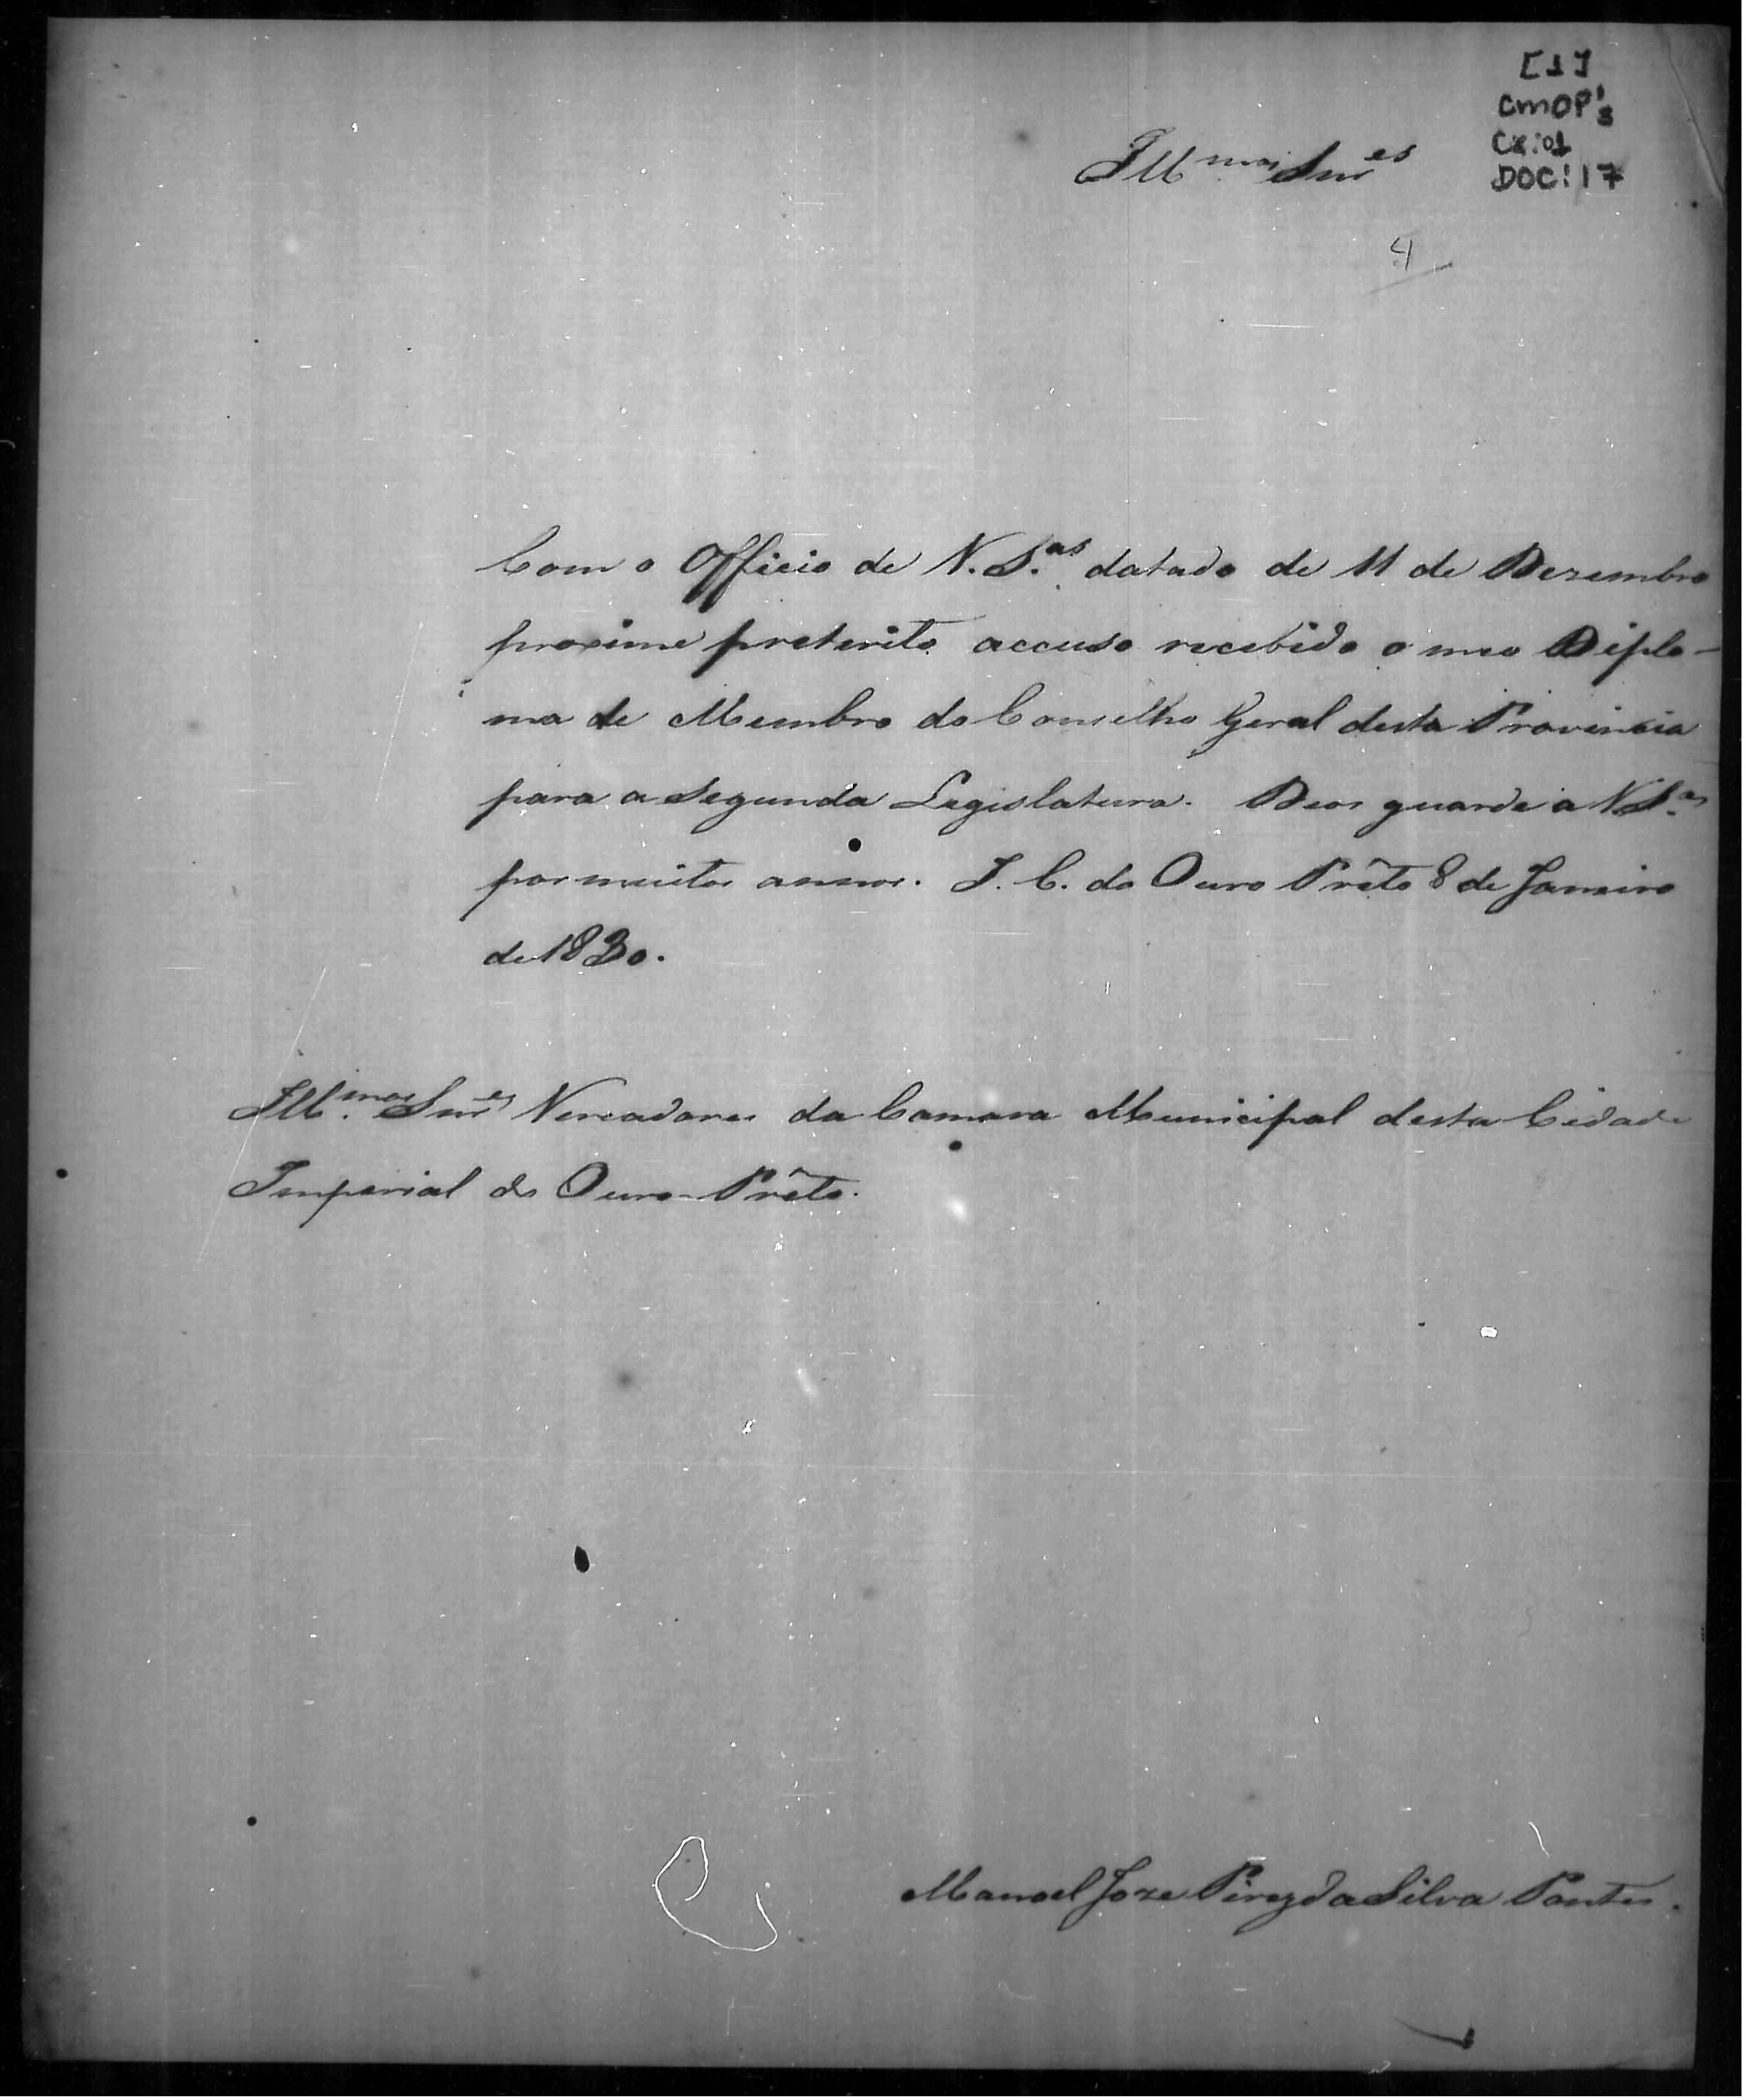 [1]
CMOP's
CX:01
DOC:17
Ill.mos Snr.es
4
Com o Officio de V. S.as datado de 11 de Dezembro
proximo preterito accuso recebido o meo Diplo-
ma de Membro do Conselho Geral desta Provincia
para a segunda Legislatura. Deos guarde a V. S.as
por muitos annos. I. C. do Ouro Prêto 8 de Janeiro
de 1830.
Ill.mos Snr.es Vereadores da Camara Municipal desta Cidade
Imperial do Ouro-Prêto.
Manoel Joze Pires da Silva Pontes.